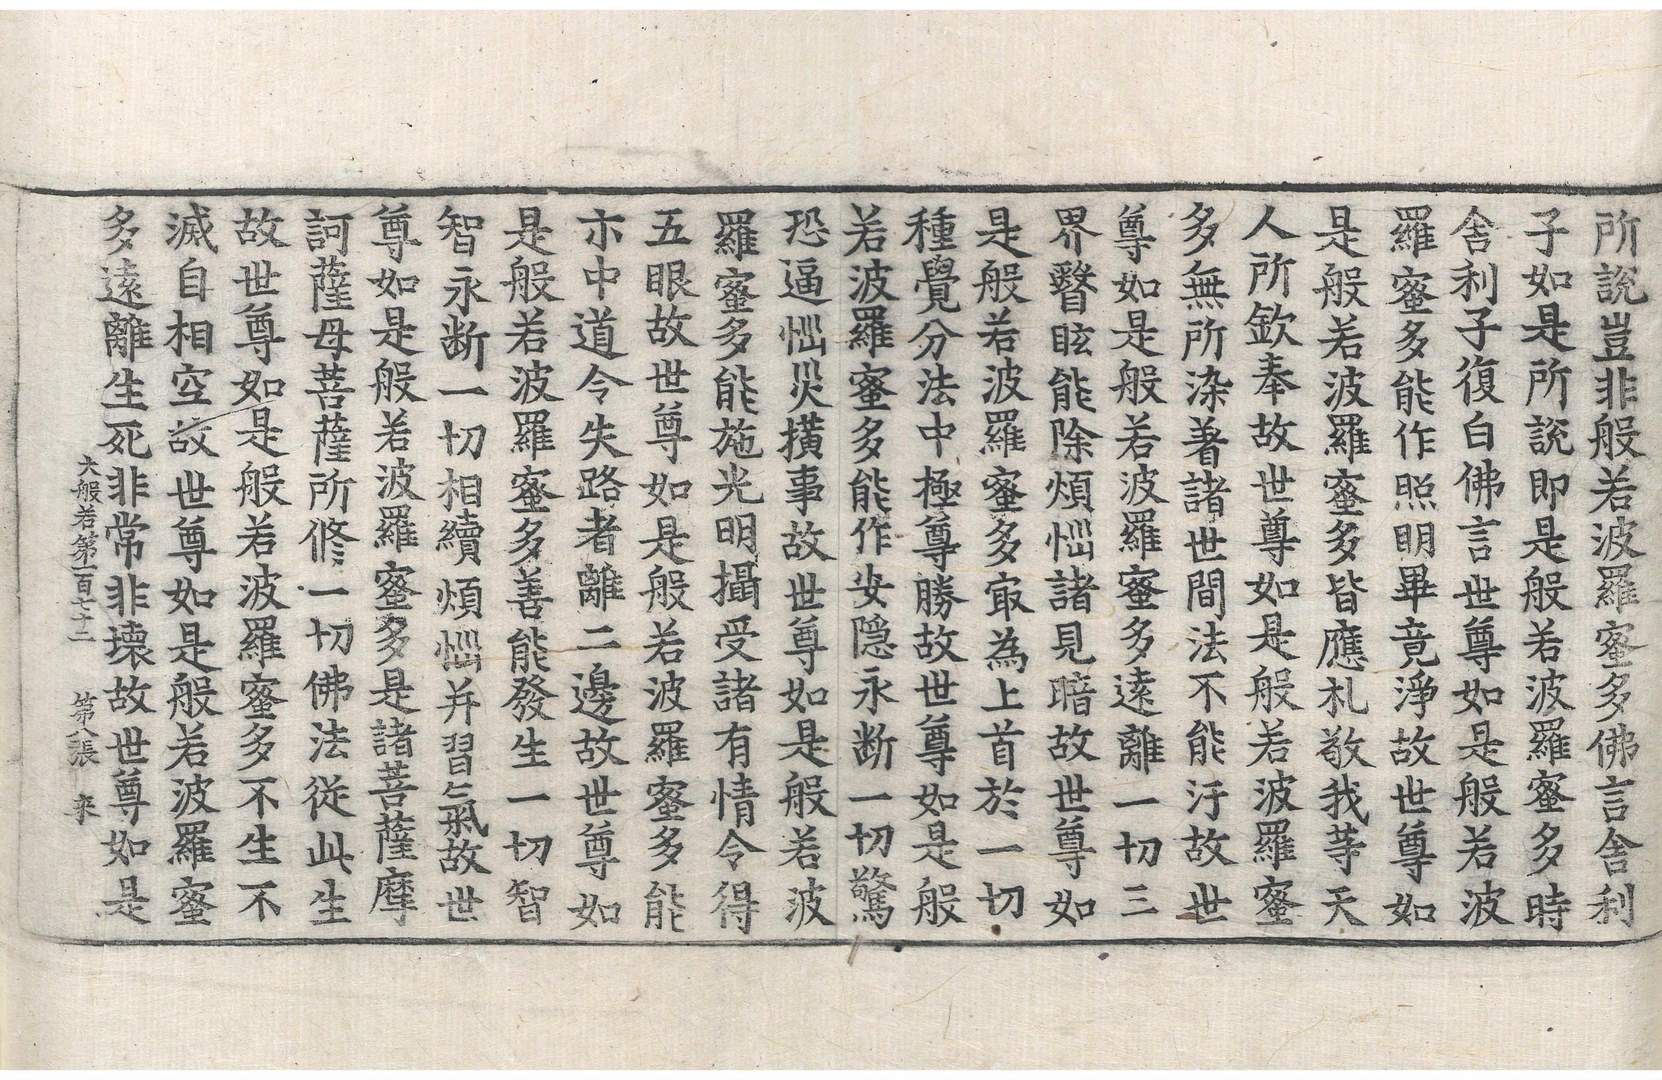 所說豈非般若波羅蜜多佛言舍利
子如是所說即是般若波羅蜜多時
舍利子復白佛言世尊如是般若波
羅蜜多能作照明畢竟淨故世尊如
是般若波羅蜜多皆應礼敬我等天
人所欽奉故世尊如是般若波羅蜜
多無所染著諸世間法不能汙故世
尊如是般若波羅蜜多遠離一切三
界瞖眩能除煩惱諸見暗故世尊如
是般若波羅蜜多㝡為上首於一切
種覺分法中極尊勝故世尊如是般
若波羅蜜多能作安隱永断一切驚
恐逼惱災橫事故世尊如是般若波
羅蜜多能施光明攝受諸有情令得
五眼故世尊如是般若波羅蜜多能
示中道令失路者離二邊故世尊如
是般若波羅蜜多善能發生一切智
智永断一切相續煩惱并習氣故世
尊如是般若波羅蜜多是諸菩薩摩
訶薩母菩薩所修一切佛法從此生
故世尊如是般若波羅蜜多不生不
滅自相空故世尊如是般若波羅蜜
多遠離生死非常非壞故世尊如是
大般若第一百七十二 第八張 來